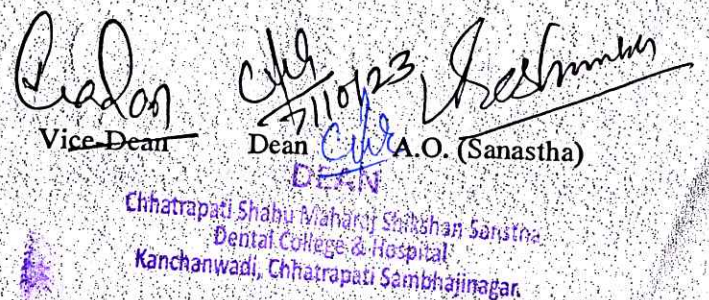 7/10/23
Vice-Dean Dean A.O. (Sanastha)
DEAN
Chhatrapati Shahu Maharaj Shikshan Sanstha
Dental College & Hospital
Kanchanwadi, Chhatrapati Sambhajinagar.